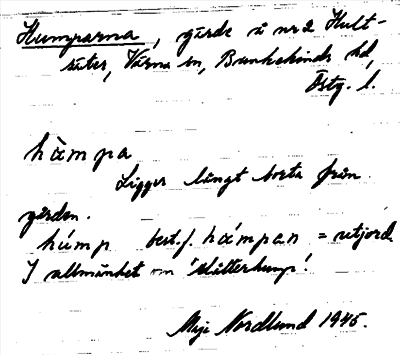 Humparna, gärde å nr 2 Hult-
säter, Värna sn, Bankekinds hd,
Östg. l.
hàmpa
Ligger långt borta från
gården.
húmp best. f. hámpan = utjord
I allmänhet en 'slåtterhump'.
Nordlund 1945.